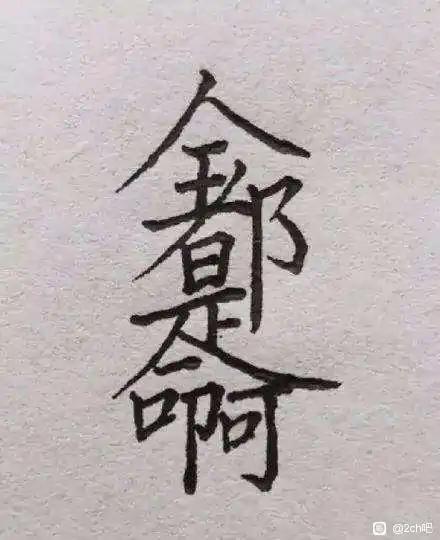 全都是命啊
@2ch吧